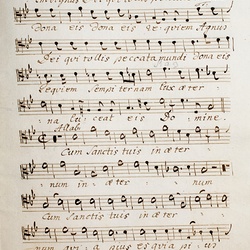 Dona eis Dona eis requiem Agnus
Dei qui tollis peccata mundi Dona eis
requiem Sempiternam lux æter
na luceat eis Domine
Cum Sanctis tuis in æter
num in æter num
Cum Sanctis tuis in æter
num quia pius es quia pius